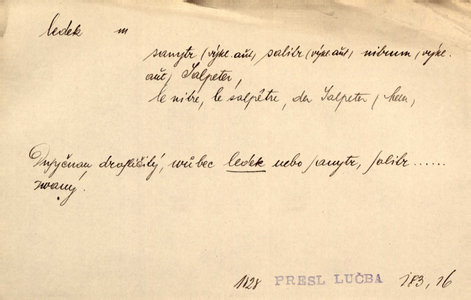 ledek m
sanytr (výkl. aut.) salitr (výkl. aut.) nitrum, výkl.
aut.) Salpeter,
le nitre, le salpêtre, der Salpeter /
drasličitý, vůbec ledek nebo sanytr, salitr ......
zvaný.
1828 PRESL LUČBA 183, 16